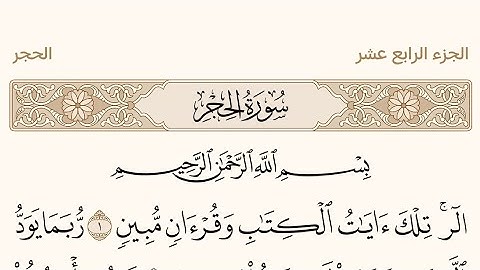 الجزء الرابع عشر
الحجر
سُورَةُ الحِجْرِ
بِسْمِ ٱللَّهِ ٱلرَّحْمَٰنِ ٱلرَّحِيمِ
الٓرۚ تِلْكَ ءَايَٰتُ ٱلْكِتَٰبِ وَقُرْءَانٖ مُّبِينٖ ١ رُّبَمَا يَوَدُّ